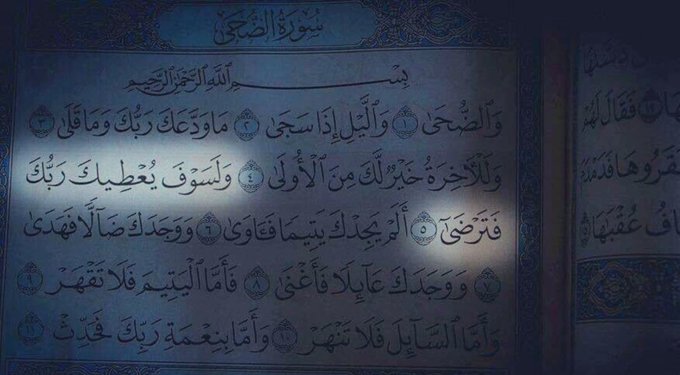 سُورَةُ الضُّحَىٰ
بِسْمِ ٱللَّهِ ٱلرَّحْمَٰنِ ٱلرَّحِيمِ
وَٱلضُّحَىٰ ١ وَٱلَّيْلِ إِذَا سَجَىٰ ٢ مَا وَدَّعَكَ رَبُّكَ وَمَا قَلَىٰ ٣
وَلَلْآخِرَةُ خَيْرٌ لَّكَ مِنَ ٱلْأُولَىٰ ٤ وَلَسَوْفَ يُعْطِيكَ رَبُّكَ
فَتَرْضَىٰٓ ٥ أَلَمْ يَجِدْكَ يَتِيمًا فَـَٔاوَىٰ ٦ وَوَجَدَكَ ضَآلًّا فَهَدَىٰ
٧ وَوَجَدَكَ عَآئِلًا فَأَغْنَىٰ ٨ فَأَمَّا ٱلْيَتِيمَ فَلَا تَقْهَرْ ٩
وَأَمَّا ٱلسَّآئِلَ فَلَا تَنْهَرْ ١٠ وَأَمَّا بِنِعْمَةِ رَبِّكَ فَحَدِّثْ ١١
فَقَالَ لَهُمْ
قَرُوهَا فَدَمْدَمَ
افُ عُقْبَٰهَا